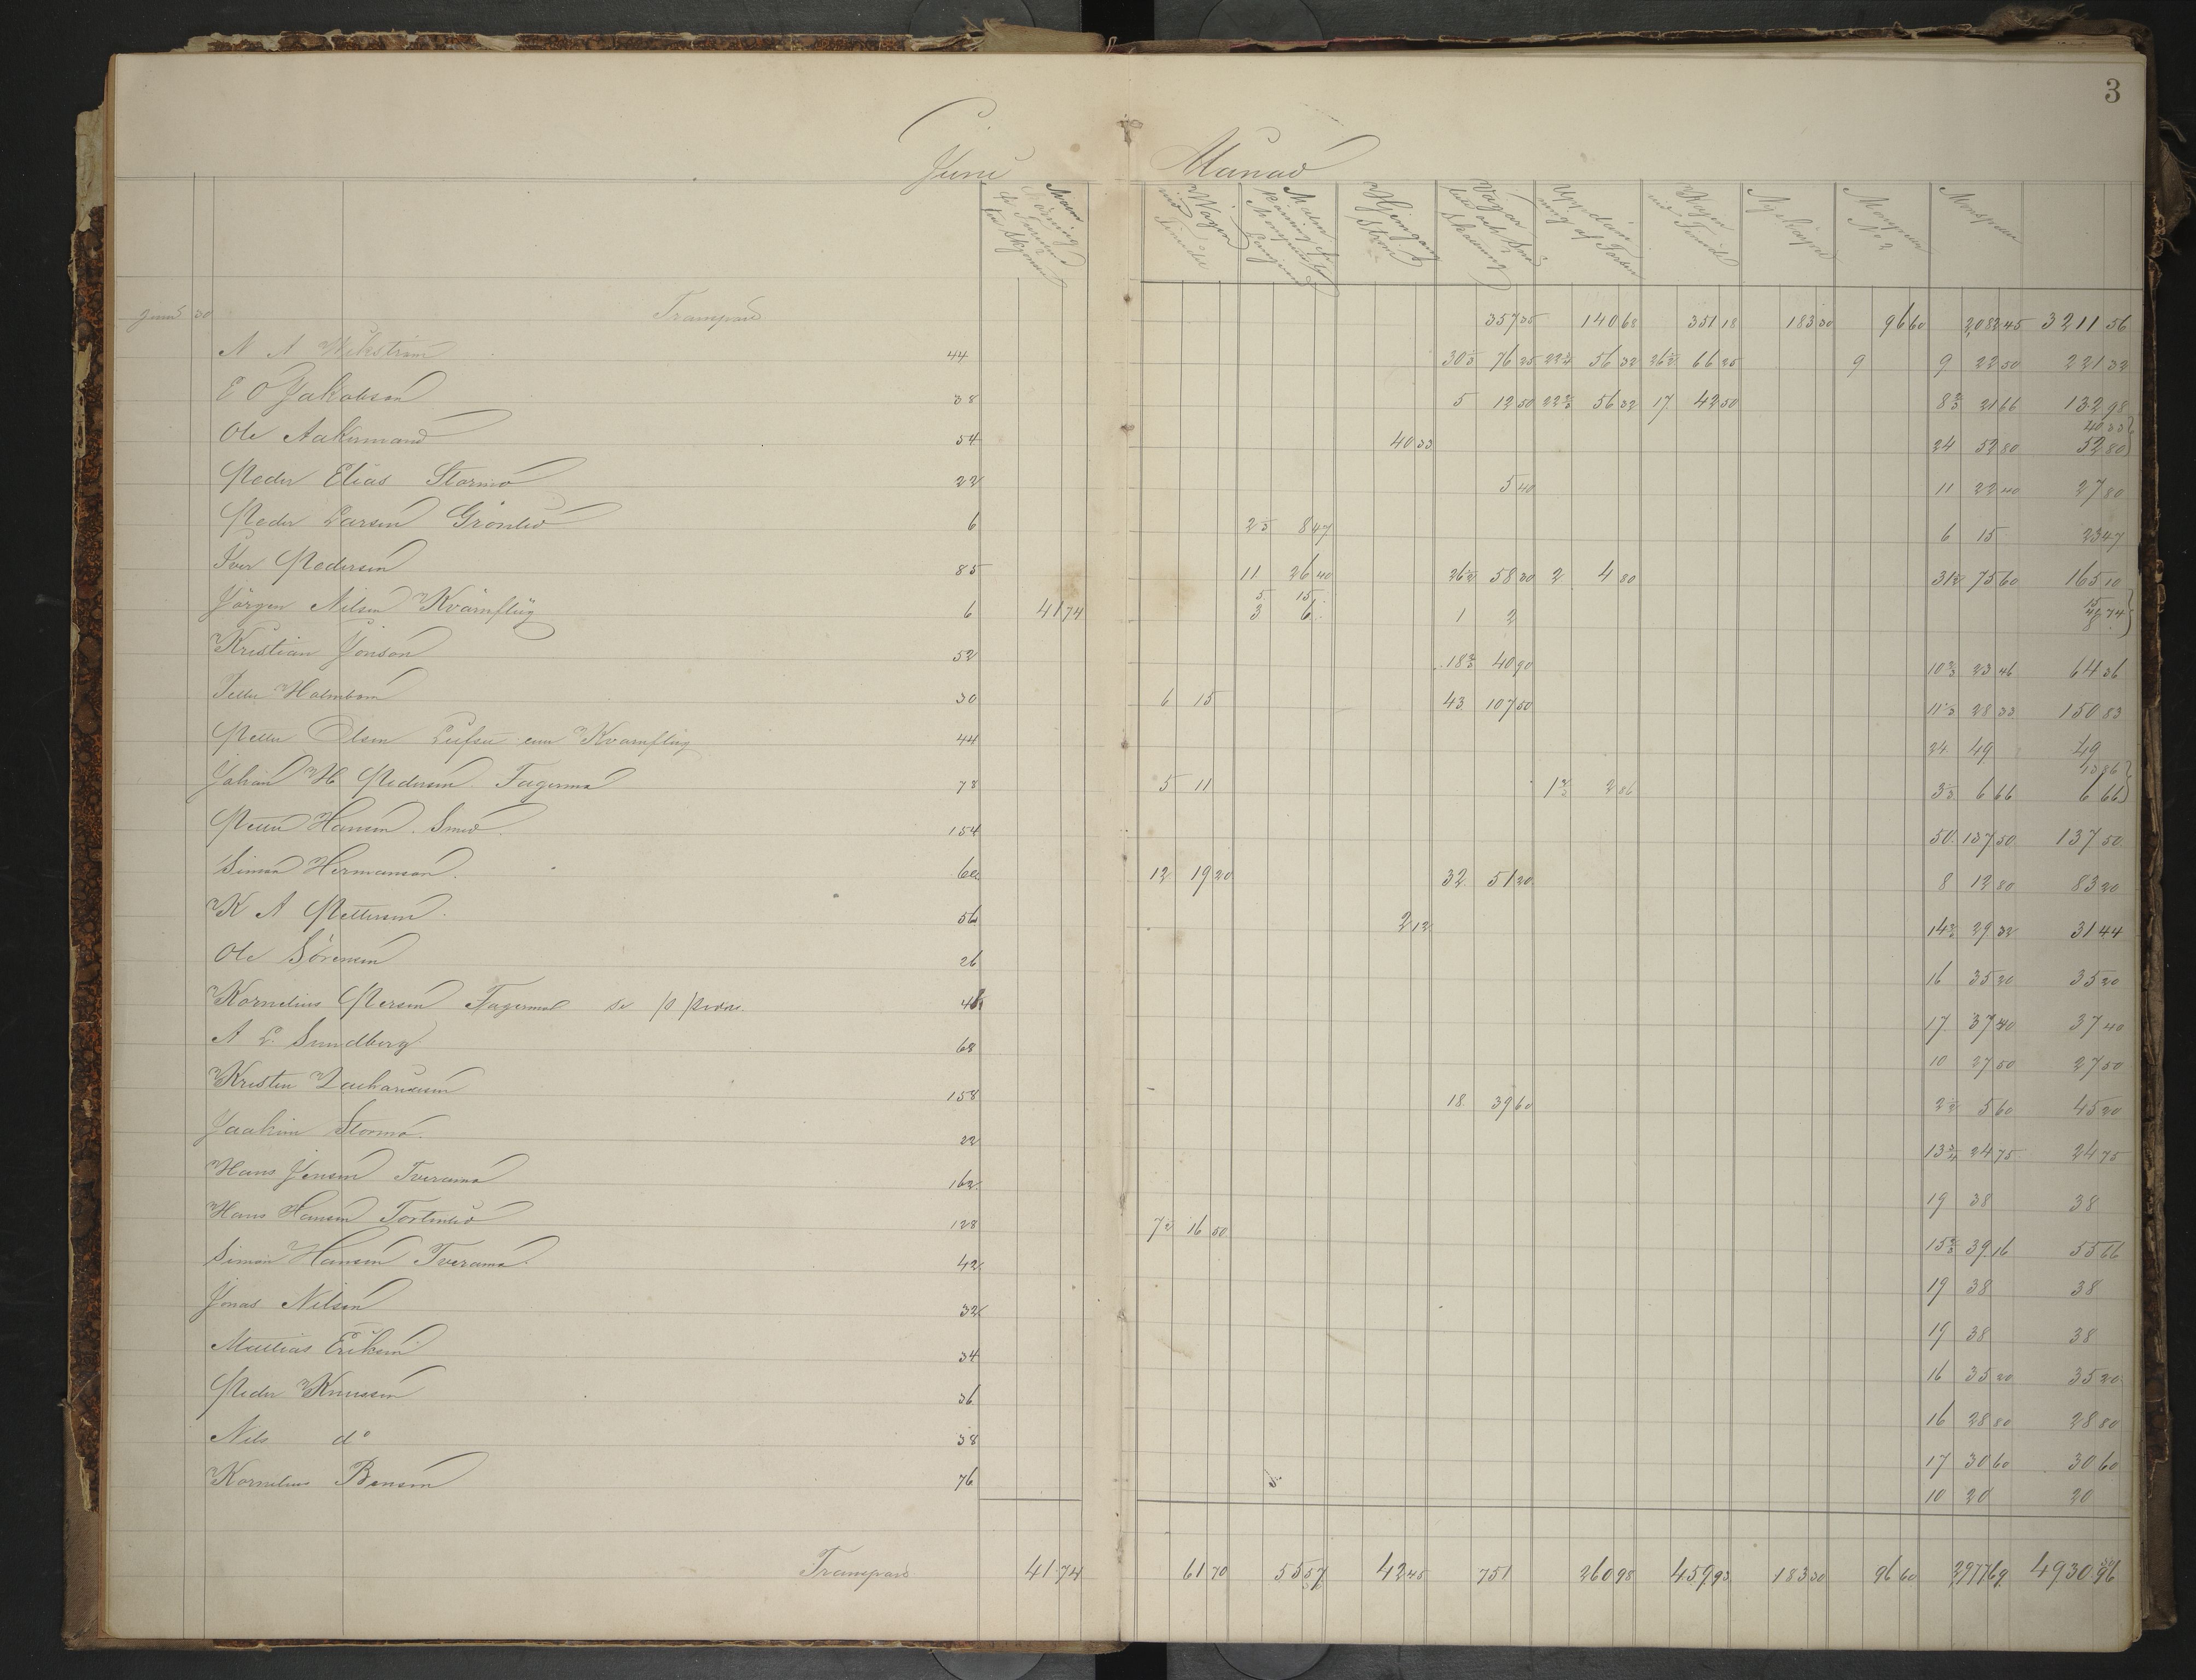 3
Juni Månad
Malm Kjøring
Wagen
Malm Kjöring
Hjemgang Ström
Vägar
af Forsen
Monsgruvan No 2
Monsgruvan
Juni 30 Transport 357 35 140 68 351 18 183 30 96 60 2082 45 3211 56
N A Wikström 44 30 1/2 76 25 22 2/4 56 32 26 1/2 66 25 9 9 22 50 221 32
E O Jakobson 38 5 12 50 22 2/3 56 32 17 42 50 8 2/3 21 66 132 98
Ole Aakermand 54 40 33 24 52 80 40 33 52 80
Peder Elias Stormo 22 5 40 11 22 40 27 80
Peder Larsen Grönlid 6 8 47 6 15 23 47
Iver Pedersen 85 11 26 40 26 1/2 58 30 2 4 80 31 1/2 75 60 165 10
Jörgen Nilsen Kvärnflüg 6 41 74 5 15 3 6 1 2
Kristian Jonson 52 18 2/3 40 90 10 2/3 23 46 64 36
Holmbom 30 6 15 43 107 50 11 1/3 28 33 150 83
Petter Olsen Kvarnflüg 44 24 49 49
Johan H Pedersen Fagermo 78 5 11 1 2/3 2 86 6 66 13 86 6 66
Petter Hansen Smed 154 50 137 50 137 50
Simon Hermanson 60 12 19 20 32 51 20 8 12 80 83 20
K A Pettersen 56 2 12 14 2/3 29 32 31 44
Ole Sörensen 26 16 35 20 35 20
Kornelius Persen Fagermo 17 37 40 37 40
A L Sundberg 68 10 27 50 27 50
Kristen Zachariasen 158 18 39 60 2 1/2 5 60 45 20
Joakim Stormo 22 13 3/4 24 75 24 75
Hans Jensen Tveraamo 162 19 38 38
Hans Hansen Tortenlid 128 7 1/2 16 50 15 2/3 39 16 55 66
Simon Hansen Tveraamo 42 19 38 38
Jonas Nilsen 32 19 38 38
Mattias Eriksen 34 16 35 20 35 20
Peder Knussen 36 16 28 80 28 80
Nils do 38 17 30 60 30 60
Kornelius Bensen 76 5 10 20 20
Transport 41 74 61 70 55 57 42 45 751 260 98 459 93 183 30 96 60 2977 69 4930 96